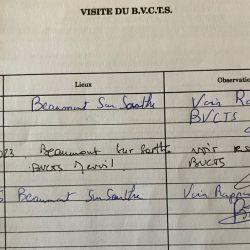 VISITE DU B.V.C.T.S.
Lieux Observation
Beaumont Sur Sarthe Voir Ra
BVCTS
023 Beaumont sur Sarthe voir
BVCTS BVCTS
Beaumont Sur Sarthe Voir Rappo